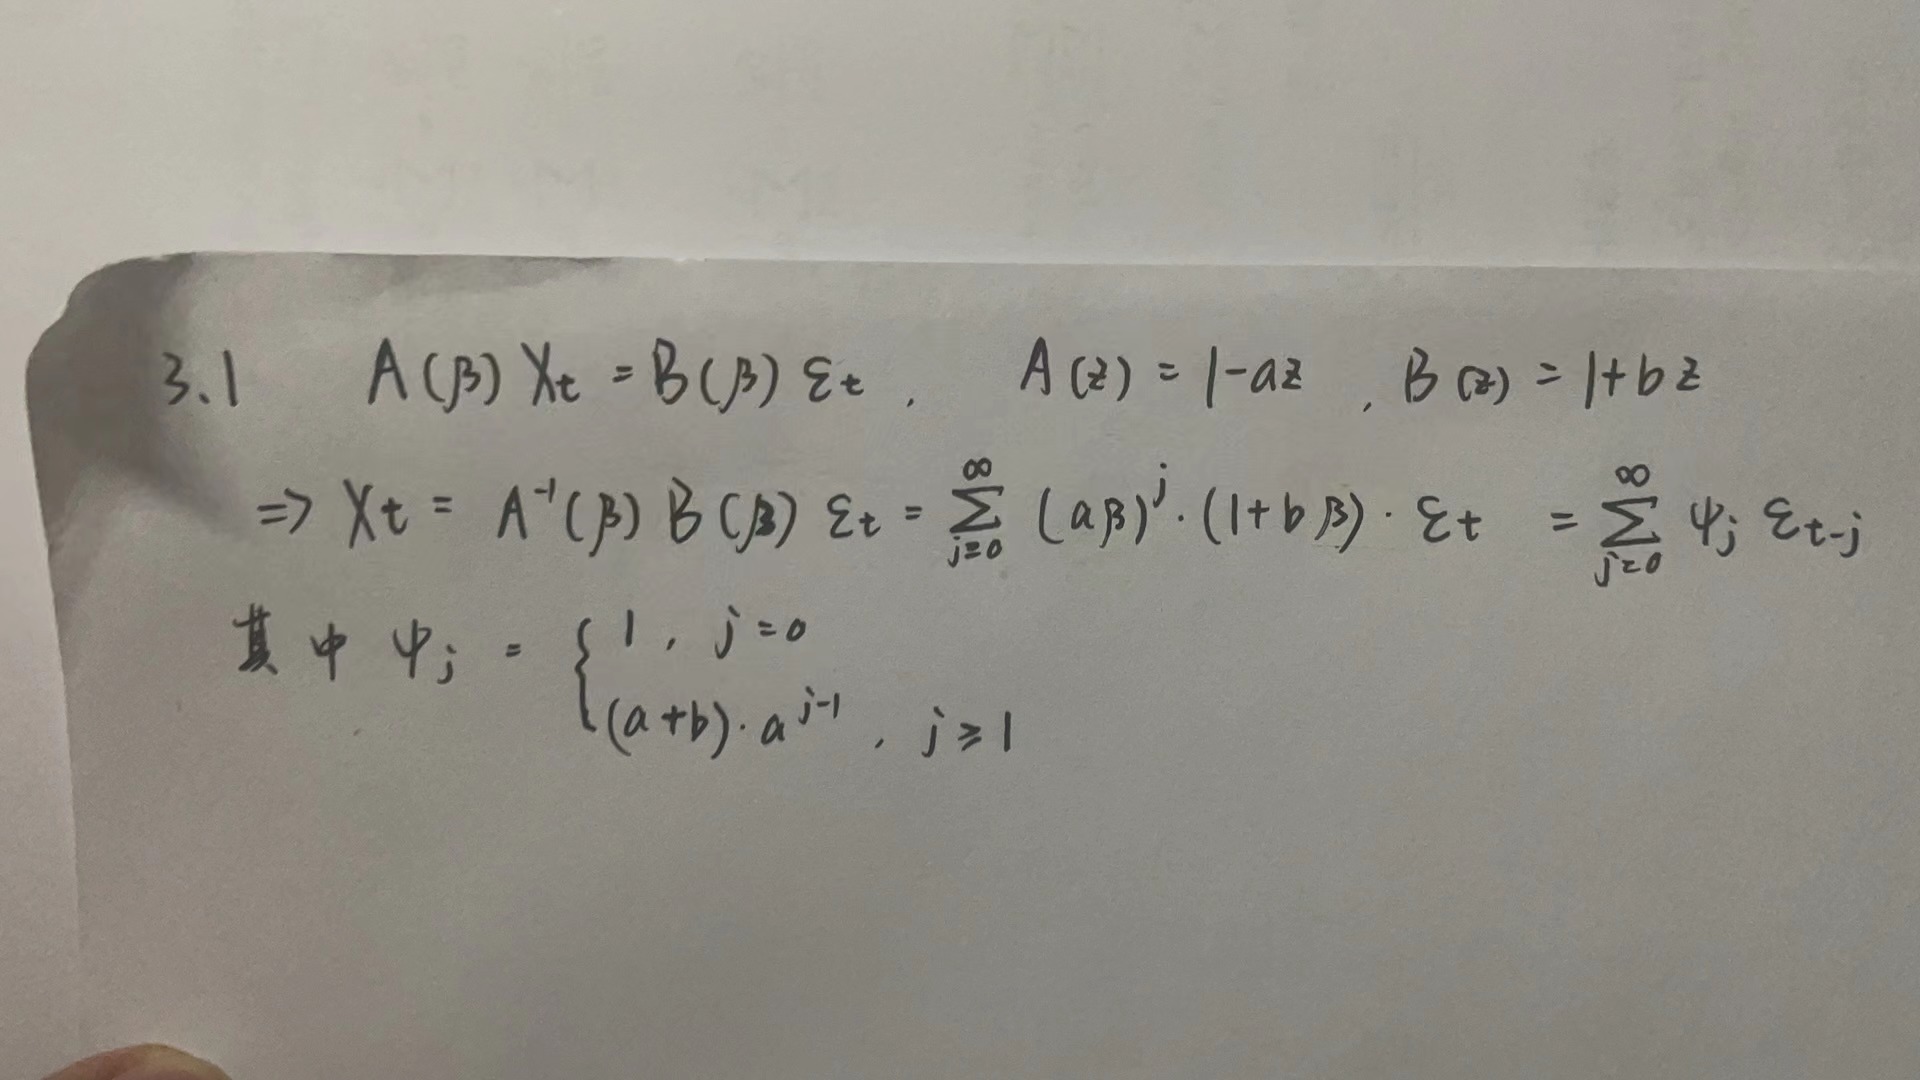 3.1 A(β) Xt = B(β) εt , A(z) = 1-az , B(z) = 1+bz
⇒ Xt = A⁻¹(β) B(β) εt = ∑_{j=0}^{∞} (aβ)^j · (1+bβ) · εt = ∑_{j=0}^{∞} ψj ε_{t-j}
其中 ψj = { 1 , j=0
(a+b)·a^{j-1} , j≥1